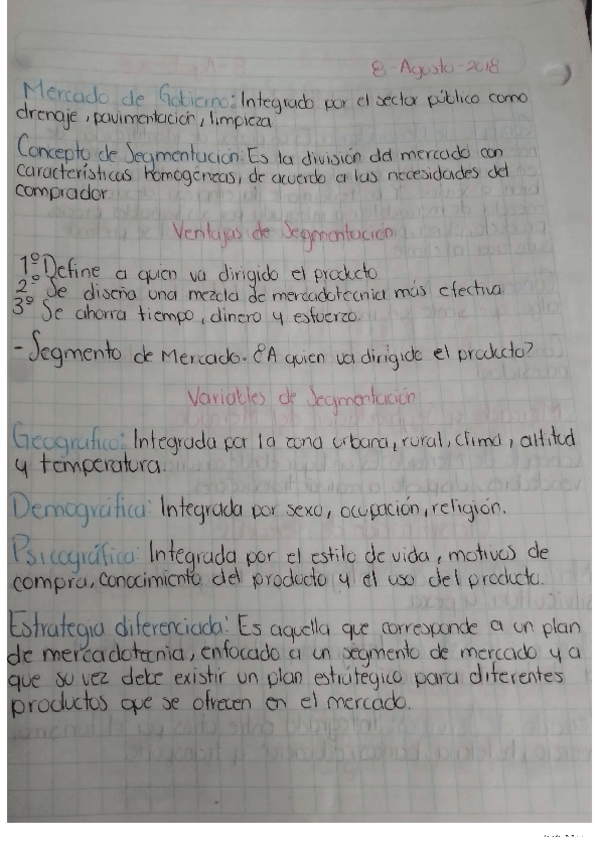 8-Agosto-2018
Mercado de Gobierno: Integrado por el sector público como
drenaje, pavimentación, limpieza
Concepto de Segmentación: Es la división del mercado con
características homogéneas, de acuerdo a las necesidades del
comprador.
Ventajas de Segmentación
1º Define a quien va dirigido el producto
2º Se diseña una mezcla de mercadotecnia más efectiva
3º Se ahorra tiempo, dinero y esfuerzo.
- Segmento de Mercado. ¿A quien va dirigido el producto?
Variables de Segmentación
Geografico: Integrada por la zona urbana, rural, clima, altitud
y temperatura.
Demográfica: Integrada por sexo, ocupación, religión.
Psicográfica: Integrada por el estilo de vida, motivos de
compra, conocimiento del producto y el uso del producto.
Estrategia diferenciada: Es aquella que corresponde a un plan
de mercadotecnia, enfocado a un segmento de mercado y a
que su vez debe existir un plan estrátegico para diferentes
productos que se ofrecen en el mercado.